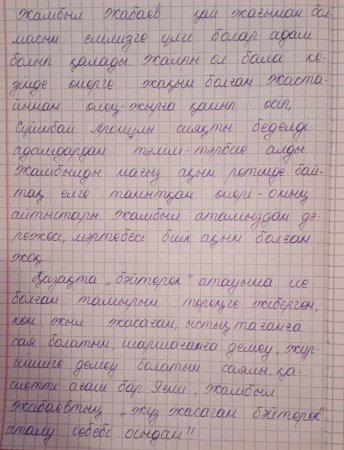 Жамбыл Жабаев қай жағынан бол-
масын елімізге үлгі болар адам
болып қалады. Жалпы ол бала ке-
зінде өнерге жақын болған. Жаста-
йынан өлең-жырға қанып өсіп,
Сүйінбай Аронұлы сияқты беделді
адамдардан тәлім-тәрбие алды.
Жамбылды нағыз ақын ретінде бай-
тақ елге танытқан өнері - оның
айтыстары. Жамбыл атамыздан дә-
режесі, мәртебесі биік ақын болған
жоқ.
Қазақта "бәйтерек" атауына ие
болған тамырын тереңге жіберген,
көп жыл жасаған, ыстықтағанға
сая болатын, шаршағанға демеу, жүр-
гіншіге демеу болатын саялы, қа-
сиетті ағаш бар. Яғни, Жамбыл
Жабаевтың "жүз жасаған бәйтерек"
аталу себебі осыдан!!